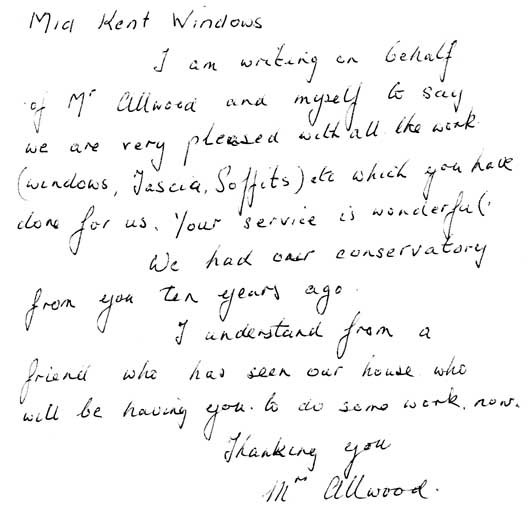 Mid Kent Windows
I am writing on behalf
of Mr Allwood and myself to say
we are very pleased with all the work
(windows, Fascia, Soffits) etc which you have
done for us. Your service is wonderful.
We had our conservatory
from you ten years ago.
I understand from a
friend who has seen our house who
will be having you to do some work. now.
Thanking you
Mrs Allwood.